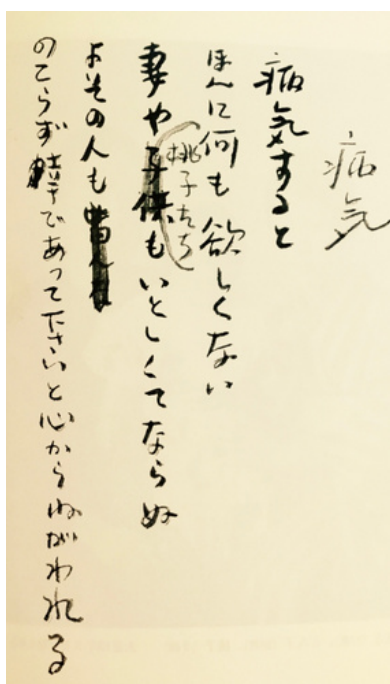 病気
病気すると
ほんに何も欲しくない
妻や桃子たちもいとしくてならぬ
よその人も
のこらず幸であって下さいと心からねがわれる